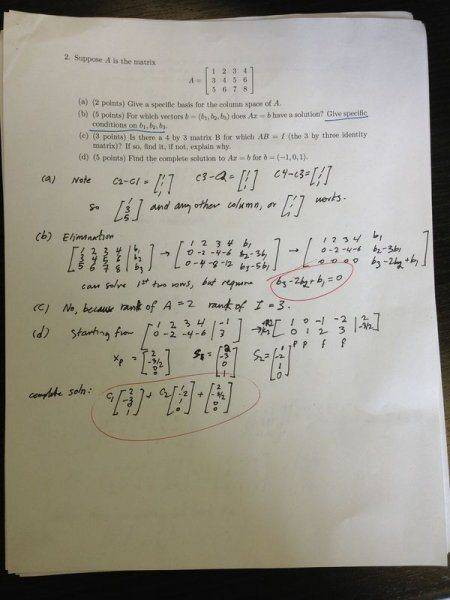 2. Suppose A is the matrix
A = [ 1 2 3 4
3 4 5 6
5 6 7 8 ]
(a) (2 points) Give a specific basis for the column space of A.
(b) (5 points) For which vectors b = (b₁, b₂, b₃) does Ax = b have a solution? Give specific
conditions on b₁, b₂, b₃.
(c) (3 points) Is there a 4 by 3 matrix B for which AB = I (the 3 by three identity
matrix)? If so, find it, if not, explain why.
(d) (5 points) Find the complete solution to Ax = b for b = (−1, 0, 1).
(a) Note C2-C1 = [1 1 1] C3-C2 = [1 1 1] C4-C3 = [1 1 1]
so [1 3 5] and any other column, or [1 1 1] works.
(b) Elimination
[1 2 3 4 | b₁ → [1 2 3 4 b₁ → [1 2 3 4 b₁
3 4 5 6 | b₂ 0 -2 -4 -6 b₂-3b₁ 0 -2 -4 -6 b₂-3b₁
5 6 7 8 | b₃] 0 -4 -8 -12 b₃-5b₁] 0 0 0 0 b₃-2b₂+b₁]
can solve 1st two rows, but require b₃-2b₂+b₁=0
(c) No, because rank of A = 2 rank of I = 3.
(d) Starting from [1 2 3 4 | -1 → [1 0 -1 -2 | 2
0 -2 -4 -6 | 3] 0 1 2 3 | -3/2]
p p f f
Xp = [2 -3/2 0 0] [2 -3 0 1] S₂ = [1 -2 1 0]
complete soln: C₁ [2 -3 0 1] + C₂ [1 -2 1 0] + [2 -3/2 0 0]